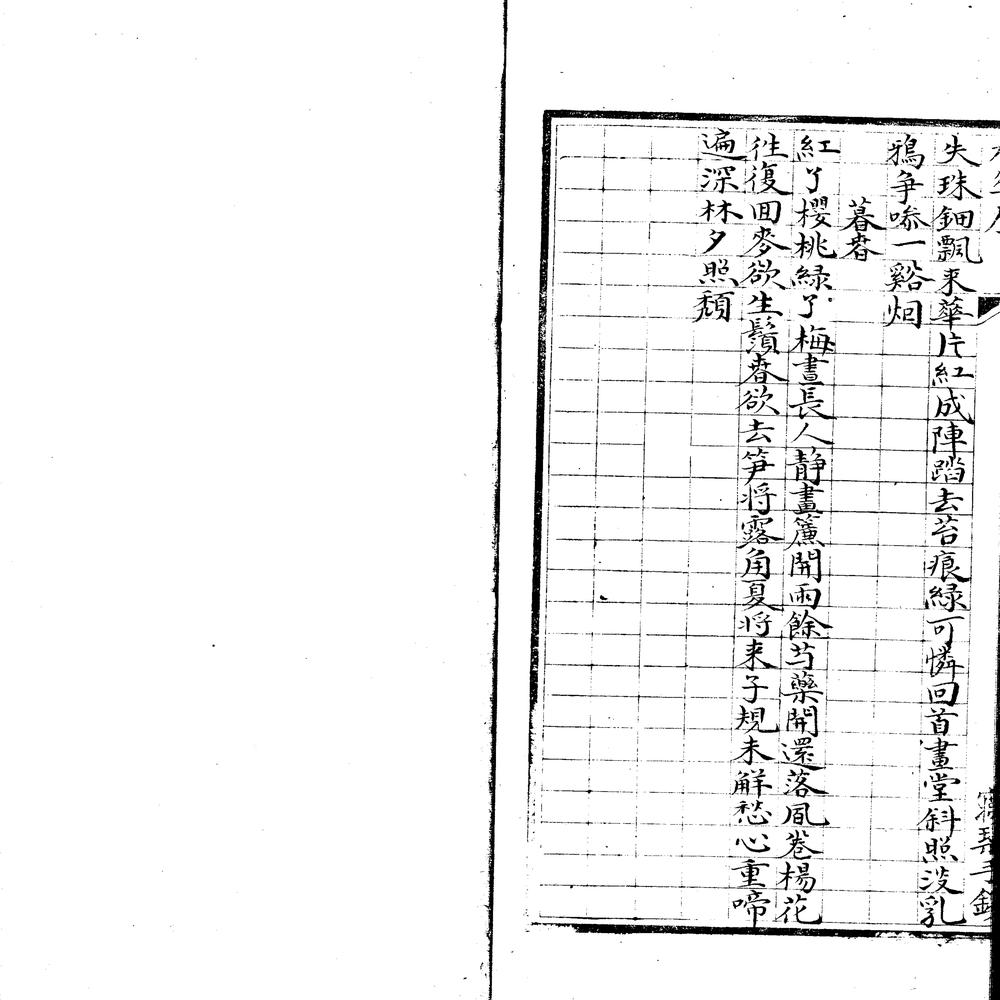 失珠鈿飄來華片紅成陣踏去苔痕綠可憐回首畫堂斜照没乳
鴉爭噪一谿烟
暮春
紅了櫻桃緑了梅晝長人靜畫簾開雨餘芍藥開還落風卷楊花
往復回麥欲生鬚春欲去笋将露角夏将来子規未解愁心重啼
遍深林夕照頽